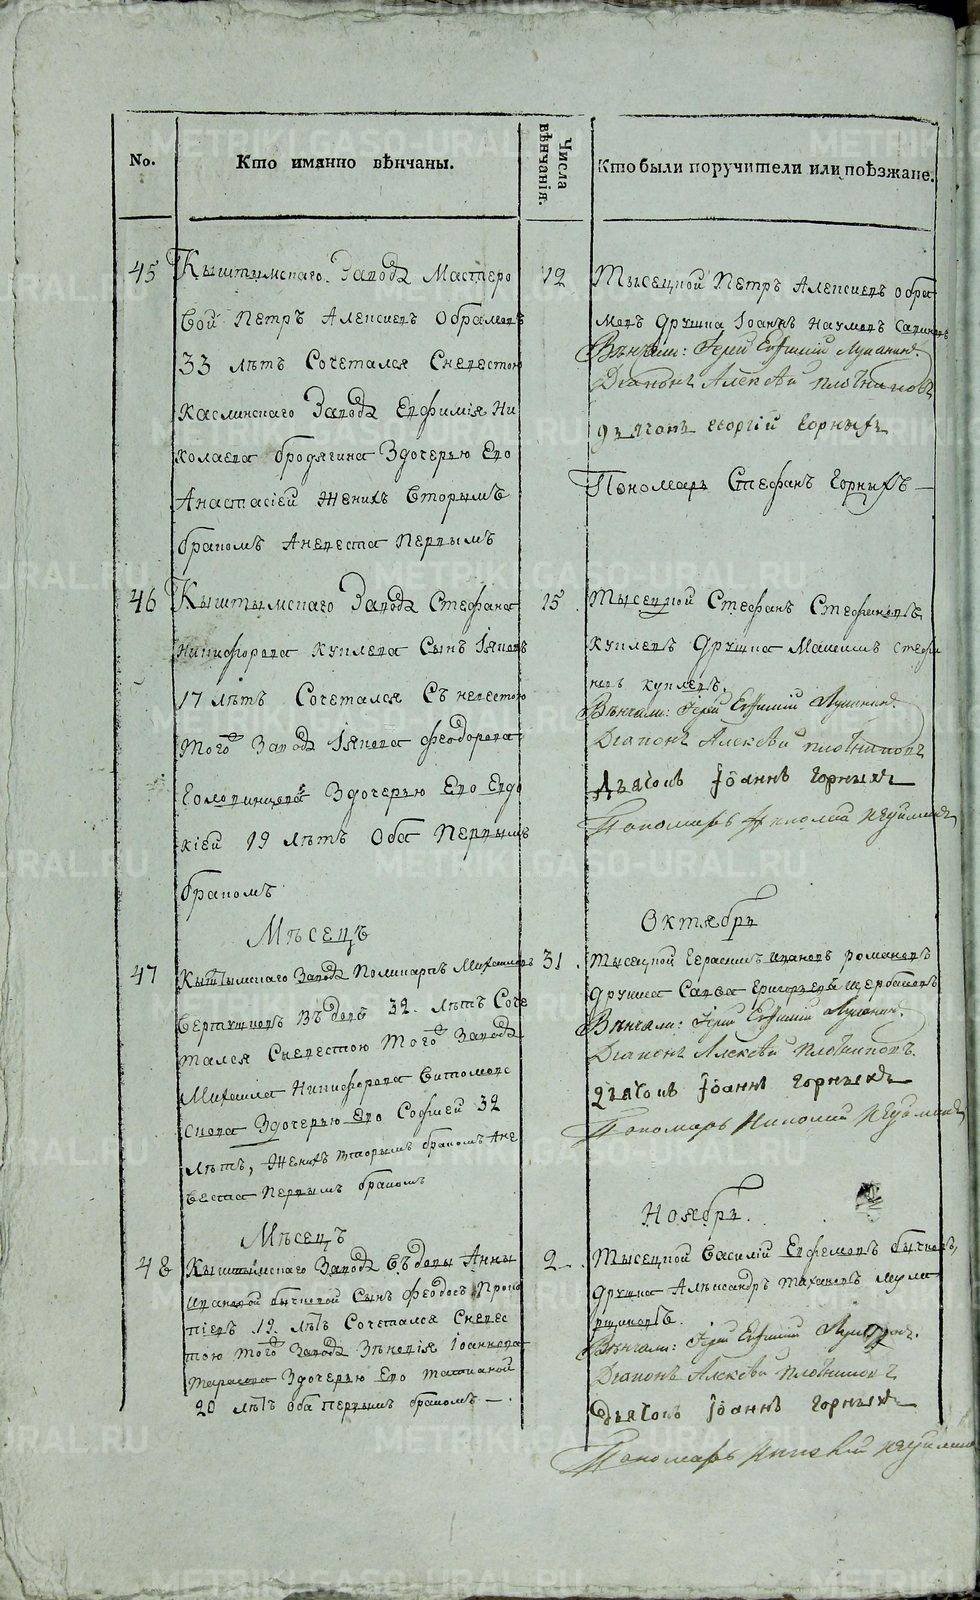 No.
Кто имянно вѣнчаны.
Числа вѣнчанія.
Кто были поручители или поѣзжане.
45
Кыштымскаго Завода Мастеро
вой Петръ Алексиевъ
33 лѣтъ Сочетался Сневестою
Каслинскаго Завода Евфимія Ни
колаева бродягина Здочерью Ево
Анастасіей Женихъ Вторымъ
бракомъ Аневеста Первымъ
12
Тысецкой Петръ Алексиевъ
Друшка Іоаннъ Наумовъ
Вѣнчали: Іерей Евѳимій
Діаконъ Алексѣй Плотниковъ
Дьячокъ Георгій Горныхъ
Пономарь Стефанъ Горныхъ
46
Кыштымскаго Завода Стефана
Никифорова Куплева Сынъ Іяковъ
17 лѣтъ Сочетался Съ невестою
Того Завода Іякова Феодорова
Здочерью Ево Евдо
кіей 19 лѣтъ Оба Первымъ
бракомъ
15
Тысецкой Стефанъ Стефановъ
Куплевъ Друшка Максимъ Стефа
новъ Куплевъ.
Вѣнчали: Іерей Евѳимій
Діаконъ Алексѣй Плотниковъ
Дьячокъ Іоаннъ Горныхъ
Пономарь Николай
Мѣсецъ
Октябрь
47
Кыштымскаго Завода Поликарпъ Михайловъ
Вдовъ 32 лѣтъ Соче
тался Сневестою Того Завода
Михаила Никифорова
Здочерью Ево Софией 32
лѣтъ, Женихъ вторымъ бракомъ Ане
веста Первымъ бракомъ
31
Тысецкой Герасимъ Ивановъ Романовъ
Друшка Савва Григорьевъ Щербаковъ
Вѣнчали: Іерей Евѳимій
Діаконъ Алексѣй Плотниковъ.
Дьячокъ Іоаннъ Горныхъ
Пономарь Николай
Мѣсецъ
Ноябрь.
48
Кыштымскаго Завода Вдовы Анны
Ивановой Бычковой Сынъ Феодосъ Проко
піевъ 19 лѣтъ Сочетался Сневес
тою того Завода Зѣновія Іоаннова
Тарасова Здочерью Ево Татианой
20 лѣтъ оба первымъ бракомъ —.
2
Тысецкой Василій Ефремовъ Бычковъ,
Друшка Алѣксандръ
Вѣнчали: Іерей Евѳимій
Діаконъ Алексѣй Плотниковъ
Дьячокъ Іоаннъ Горныхъ
Пономарь
METRIKI.GASO-URAL.RU